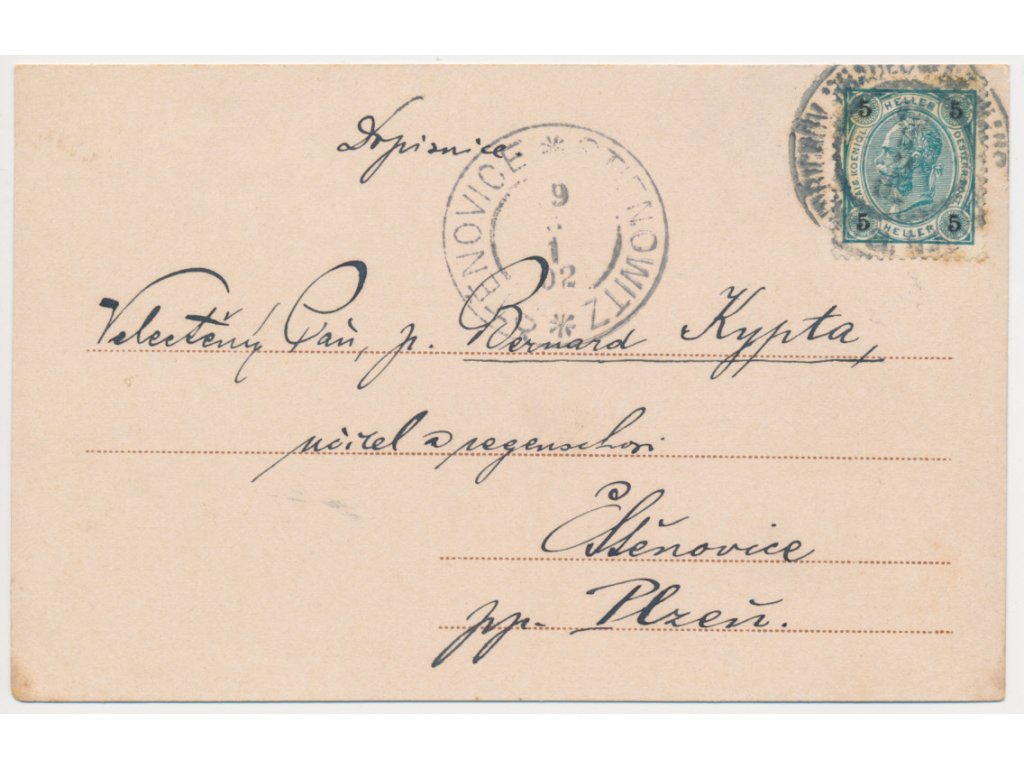 Dopisnice
ŠTĚNOVICE * STIENOWITZ *
9
1
02
5 HELLER 5
5 HELLER 5
Velectěný Pan, p. Bernard Kypta,
učitel a regenschori
Štěnovice
pp. Plzeň.